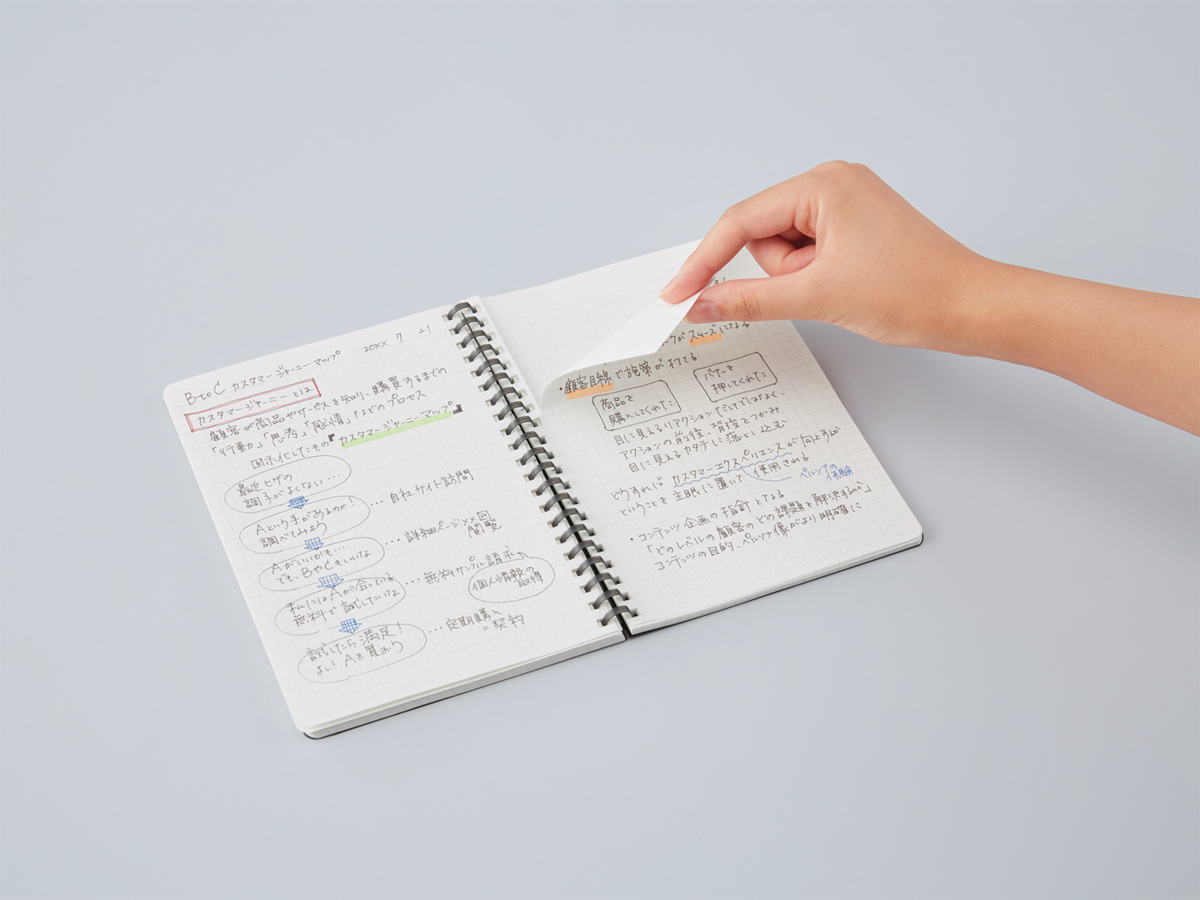 BtoC カスタマージャーニーマップ 20XX 7 21
カスタマージャーニーとは
顧客が商品やサービスを知り、購買するまでの
「行動」、「思考」、「感情」などのプロセス
図示化したもの『カスタマージャーニーマップ』
最近ヒザの
調子がよくない…
…自社サイト訪問
Aという手があるのか!
調べてみよう
…詳細ページ××回
閲覧
Aがいいかも…
でも、BやCもいいけな
…無料サンプル請求の
個人情報の
取得
私にはAが合っている
無料で試したいけな
…定期購入
契約
試したら満足!
よし! Aを買おう
がスムーズになる
・顧客目線で施策が打てる
商品を
購入してくれた
バナーを
押してくれた
目に見えるリアクションだけではなく、
アクションの前後、背後をつかみ
目に見えるカタチに落とし込む
どうすればカスタマーエクスペリエンスが向上するか
ということを主眼に置いて使用される
ペルソナの
体験
・コンテンツ企画の指針となる
「どのレベルの顧客のどの課題を解決するか」
コンテンツの目的、ペルソナ像がより明確に